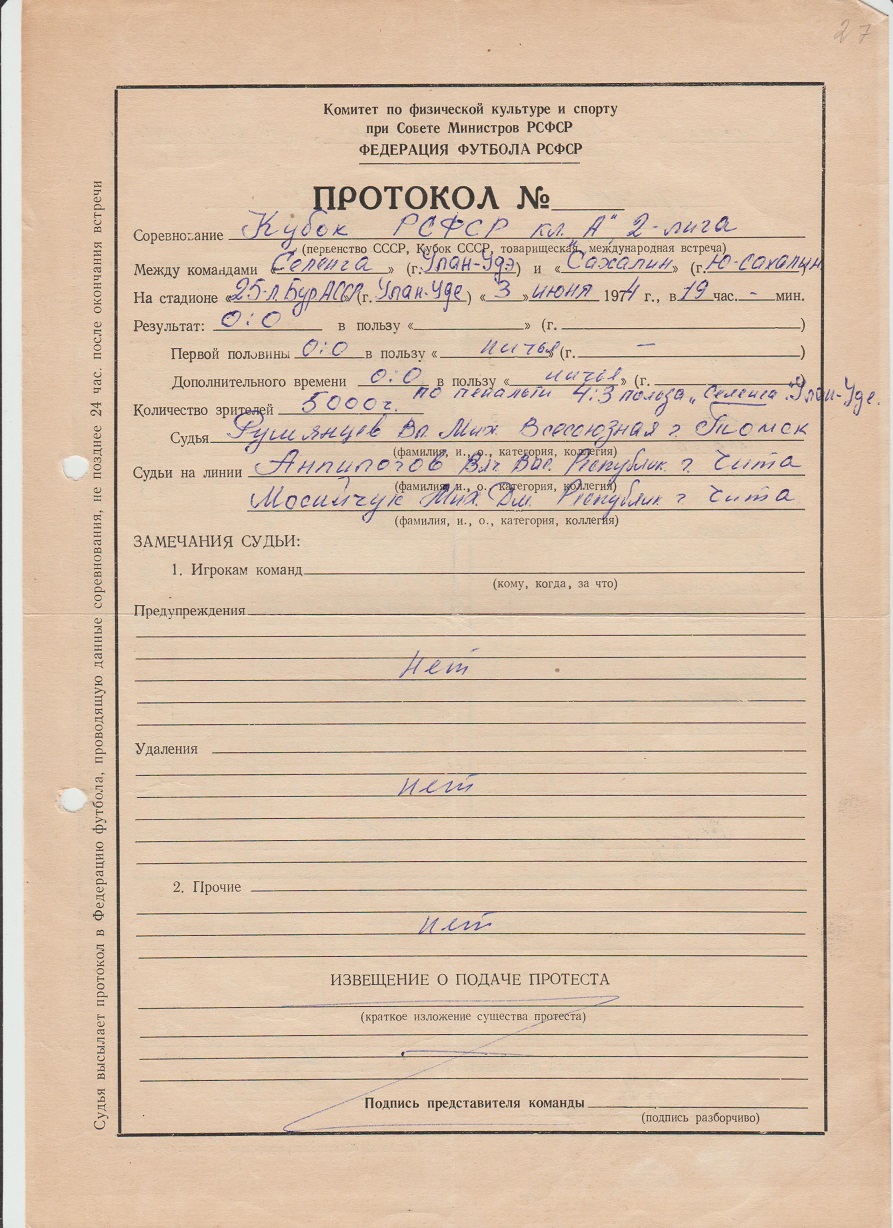 27
Комитет по физической культуре и спорту
при Совете Министров РСФСР
ФЕДЕРАЦИЯ ФУТБОЛА РСФСР
ПРОТОКОЛ №
Соревнование Кубок РСФСР кл. "А", 2-лига
(первенство СССР, Кубок СССР, товарищеская, международная встреча)
Между командами «Селенга» (г. Улан-Удэ) и «Сахалин» (г. Ю-Сахалин
На стадионе «25-л. Бур АССР» (г. Улан-Уде) «3» июня 1974 г., в 19 час. - мин.
Результат: 0:0 в пользу « » (г. )
Первой половины 0:0 в пользу « ничья» (г. — )
Дополнительного времени 0:0 в пользу « ничья» (г. )
по пенальти 4:3 "Селенга" Улан-Уде.
Количество зрителей 5000 ч.
Судья Румянцев Вл. Мих. Всесоюзная г. Томск
(фамилия, и., о., категория, коллегия)
Судьи на линии Анпилогов Вяч Вас. Республик. г. Чита
(фамилия, и., о., категория, коллегия)
Мосийчук Мих. Дм. Республик г. Чита
(фамилия, и., о., категория, коллегия)
ЗАМЕЧАНИЯ СУДЬИ:
1. Игрокам команд
(кому, когда, за что)
Предупреждения
Нет
Удаления
Нет
2. Прочие
Нет
ИЗВЕЩЕНИЕ О ПОДАЧЕ ПРОТЕСТА
(краткое изложение существа протеста)
Подпись представителя команды
(подпись разборчиво)
Судья высылает протокол в Федерацию футбола, проводящую данные соревнования, не позднее 24 час. после окончания встречи